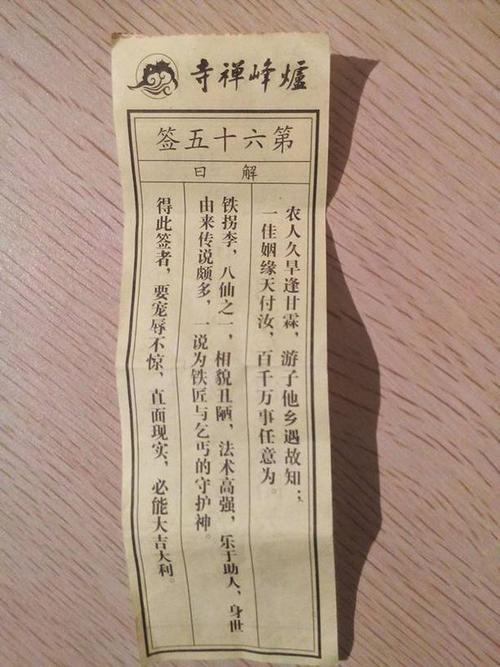 爐峰禅寺
第六十五签
解曰
农人久旱逢甘霖，游子他乡遇故知；
一佳姻缘天付汝，百千万事任意为。
铁拐李，八仙之一，相貌丑陋，法术高强，乐于助人，身世
由来传说颇多，一说为铁匠与乞丐的守护神。
得此签者，要宠辱不惊，直面现实，必能大吉大利。